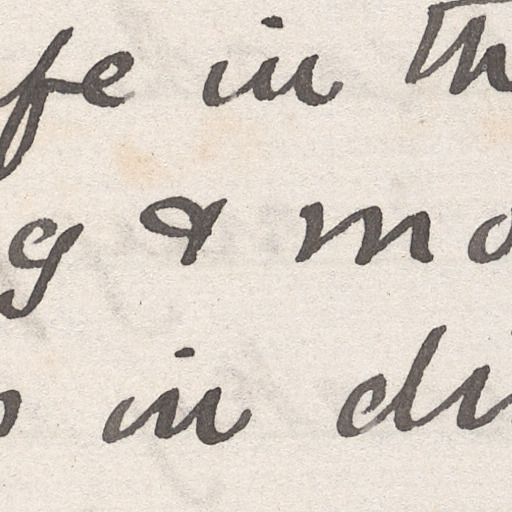 fe in th
g & mo
in di